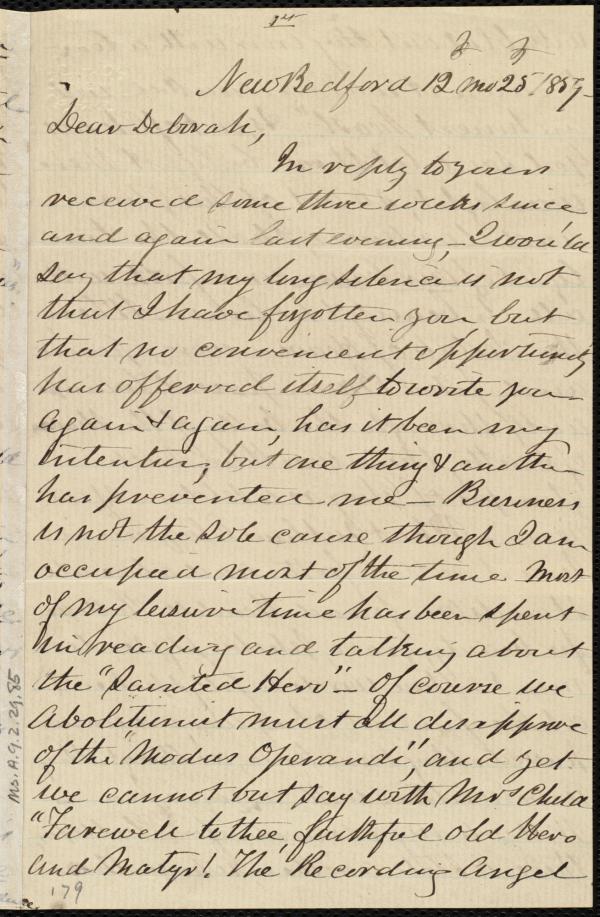 1st
New Bedford 12 mo 25 1859-
Dear Deborah,
In reply to yours
received some three weeks since
and again last evening, - I would
say that my long silence is not
that I have forgotten you but
that no convenient opportunity
has offerred itself to write you -
again & again, has it been my
intention, but one thing & another
has prevented me - Business
is not the sole cause though I am
occupied most of the time Most
of my leisure time has been spent
in reading and talking about
the "Sainted Hero" - Of course we
Abolitionist must all disapprove
of the "Modus Operandi", and yet
we cannot but say with Mrs Child
"Farewell to thee, faithful old Hero
and Matyr! The Recording Angel
Ms.A.9.2.29.85
179